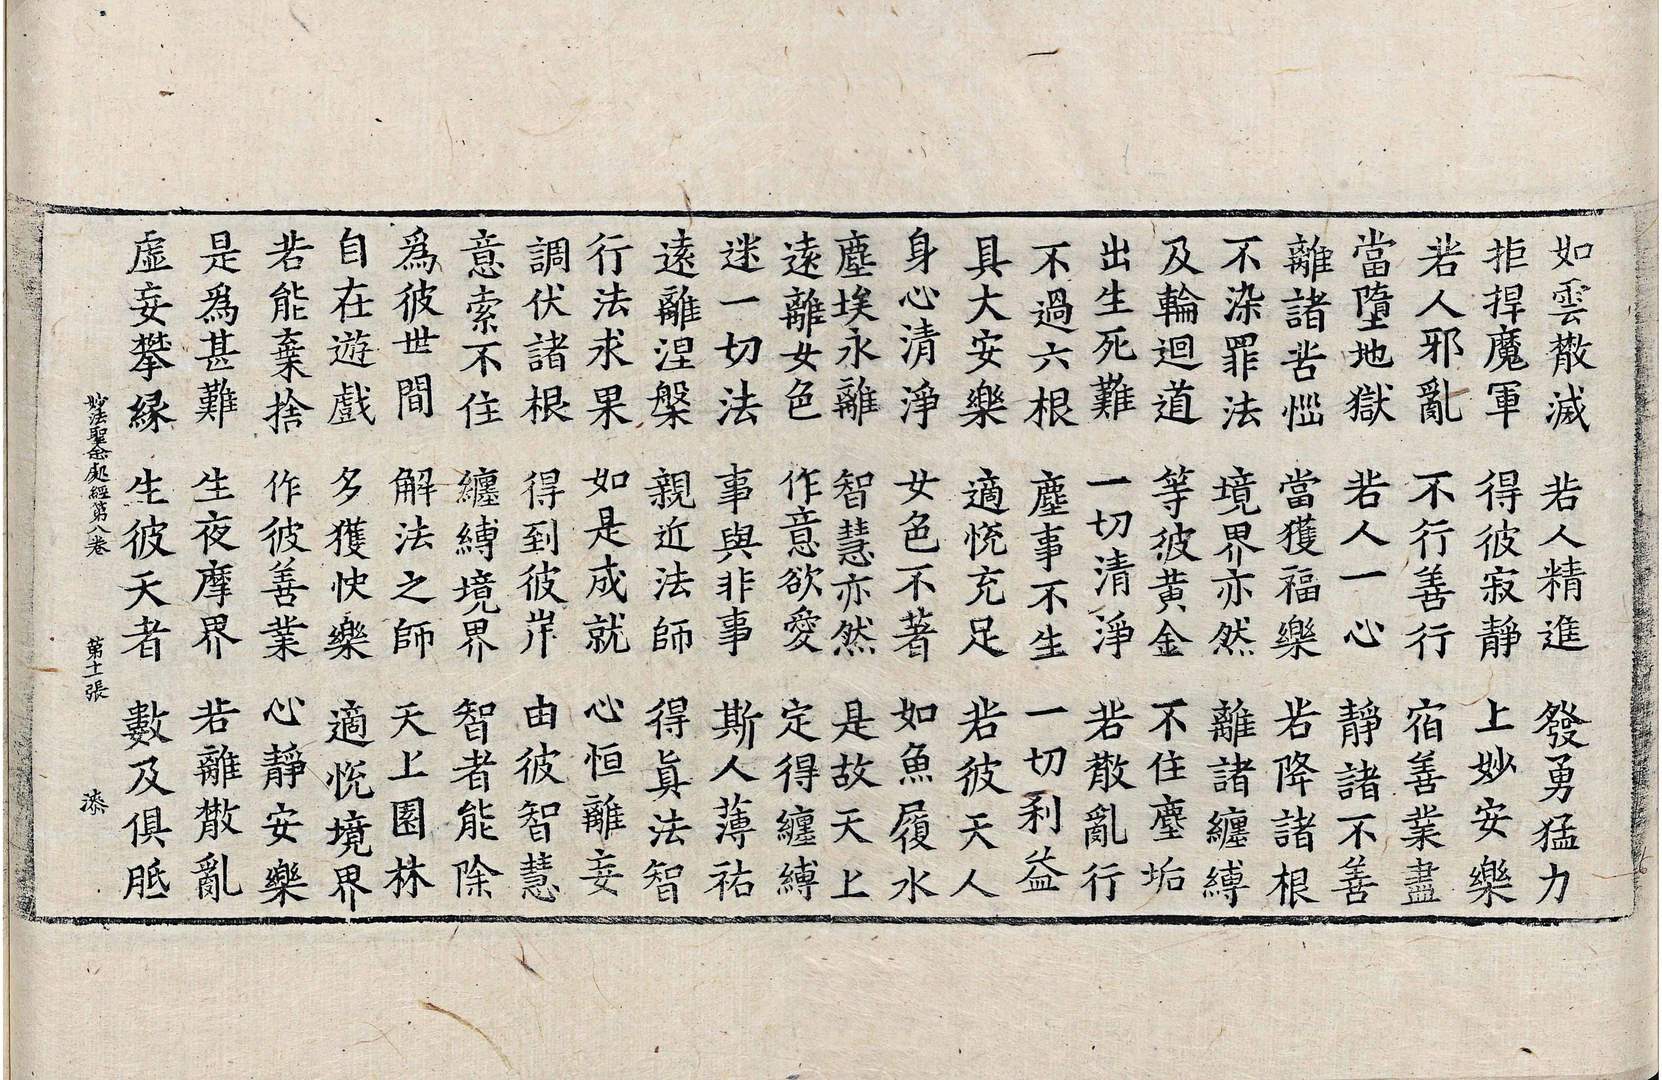 如雲散滅 若人精進 發勇猛力
拒捍魔軍 得彼寂靜 上妙安樂
若人邪亂 不行善行 宿善業盡
當墮地獄 若人一心 靜諸不善
離諸苦惱 當獲福樂 若降諸根
不染罪法 境界亦然 離諸纏縛
及輪迴道 等彼黃金 不住塵垢
出生死難 一切清淨 若散亂行
不過六根 塵事不生 一切利益
具大安樂 適悅充足 若彼天人
身心清淨 女色不著 如魚履水
塵埃永離 智慧亦然 是故天上
遠離女色 作意欲愛 定得纏縛
迷一切法 事與非事 斯人薄祐
遠離涅槃 親近法師 得眞法智
行法求果 如是成就 心恒離妄
調伏諸根 得到彼岸 由彼智慧
意索不住 纏縛境界 智者能除
爲彼世間 解法之師 天上園林
自在遊戲 多獲快樂 適悅境界
若能棄捨 作彼善業 心靜安樂
是爲甚難 生夜摩界 若離散亂
虛妄攀緣 生彼天者 數及俱胝
妙法聖念處經第八卷 第十張 漆